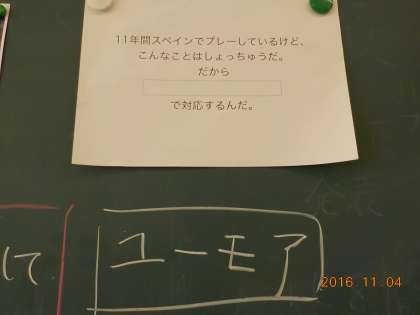 11年間スペインでプレーしているけど、
こんなことはしょっちゅうだ。
だから
で対応するんだ。
して
ユーモア
2016.11.04